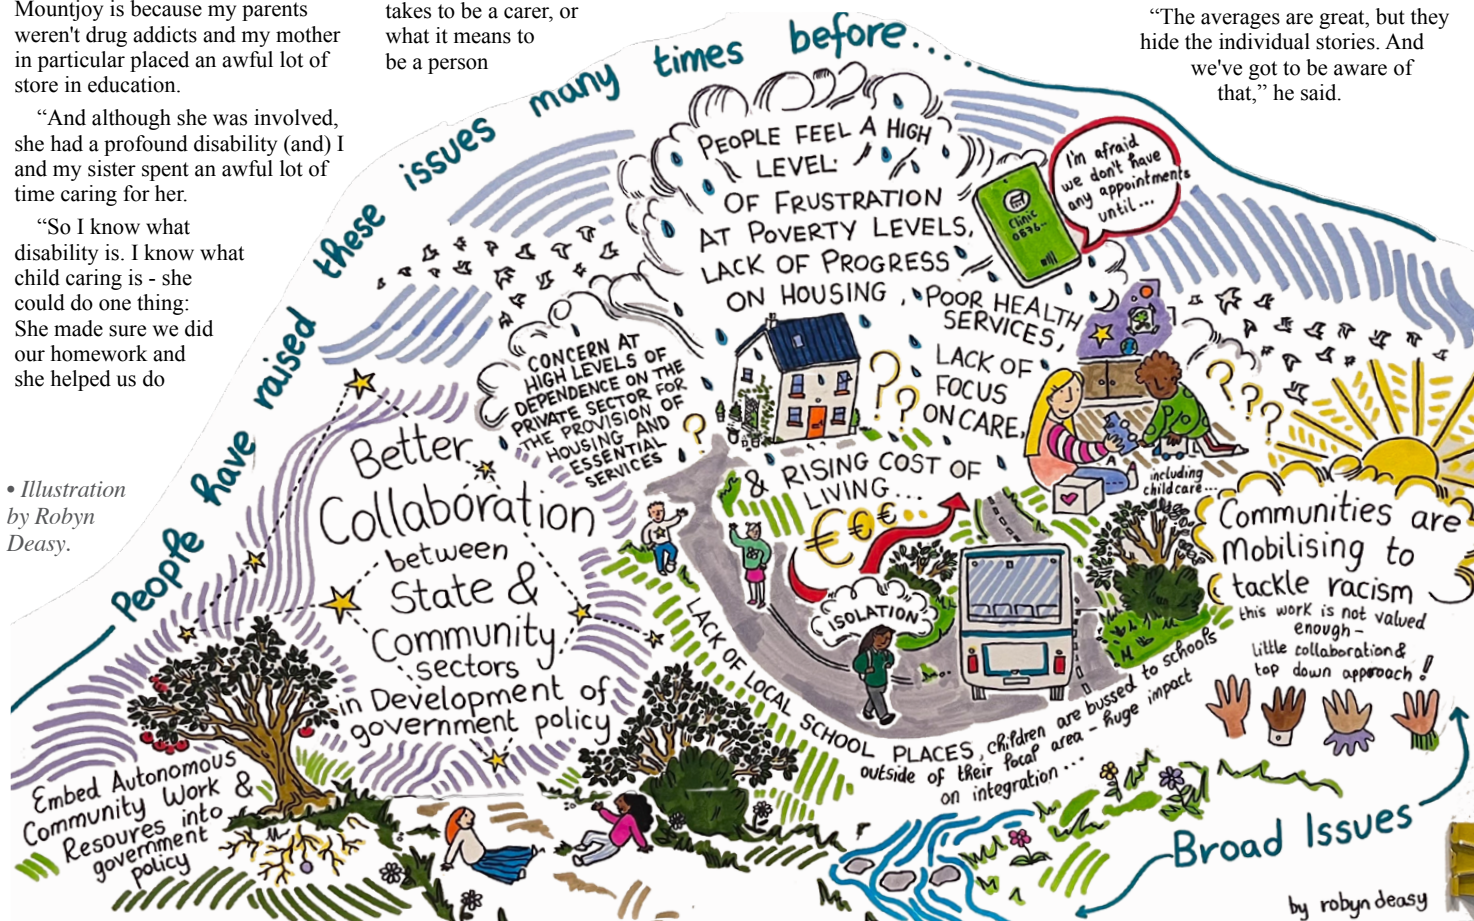 Mountjoy is because my parents
weren't drug addicts and my mother
in particular placed an awful lot of
store in education.
“And although she was involved,
she had a profound disability (and) I
and my sister spent an awful lot of
time caring for her.
“So I know what
disability is. I know what
child caring is - she
could do one thing:
She made sure we did
our homework and
she helped us do
takes to be a carer, or
what it means to
be a person
“The averages are great, but they
hide the individual stories. And
we've got to be aware of
that,” he said.
• Illustration
by Robyn
Deasy.
People have raised these issues many times before....
PEOPLE FEEL A HIGH
LEVEL
OF FRUSTRATION
AT POVERTY LEVELS,
LACK OF PROGRESS
ON HOUSING,
POOR HEALTH
SERVICES,
LACK OF
FOCUS
ON CARE,
including
childcare...
& RISING COST OF
LIVING...
I'm afraid
we don't have
any appointments
until...
Clinic
0876..
CONCERN AT
HIGH LEVELS OF
DEPENDENCE ON THE
PRIVATE SECTOR FOR
THE PROVISION OF
HOUSING AND
ESSENTIAL
SERVICES
? ? ?
? ? ?
€ € €
ISOLATION
Better
Collaboration
between
State &
Community
sectors
in Development of
government policy
LACK OF LOCAL SCHOOL PLACES, children are bussed to schools
outside of their local area - huge impact
on integration...
Communities are
mobilising to
tackle racism
this work is not valued
enough -
little collaboration &
top down approach!
Embed Autonomous
Community Work &
Resoures into
government
policy
Broad Issues
by robyn deasy